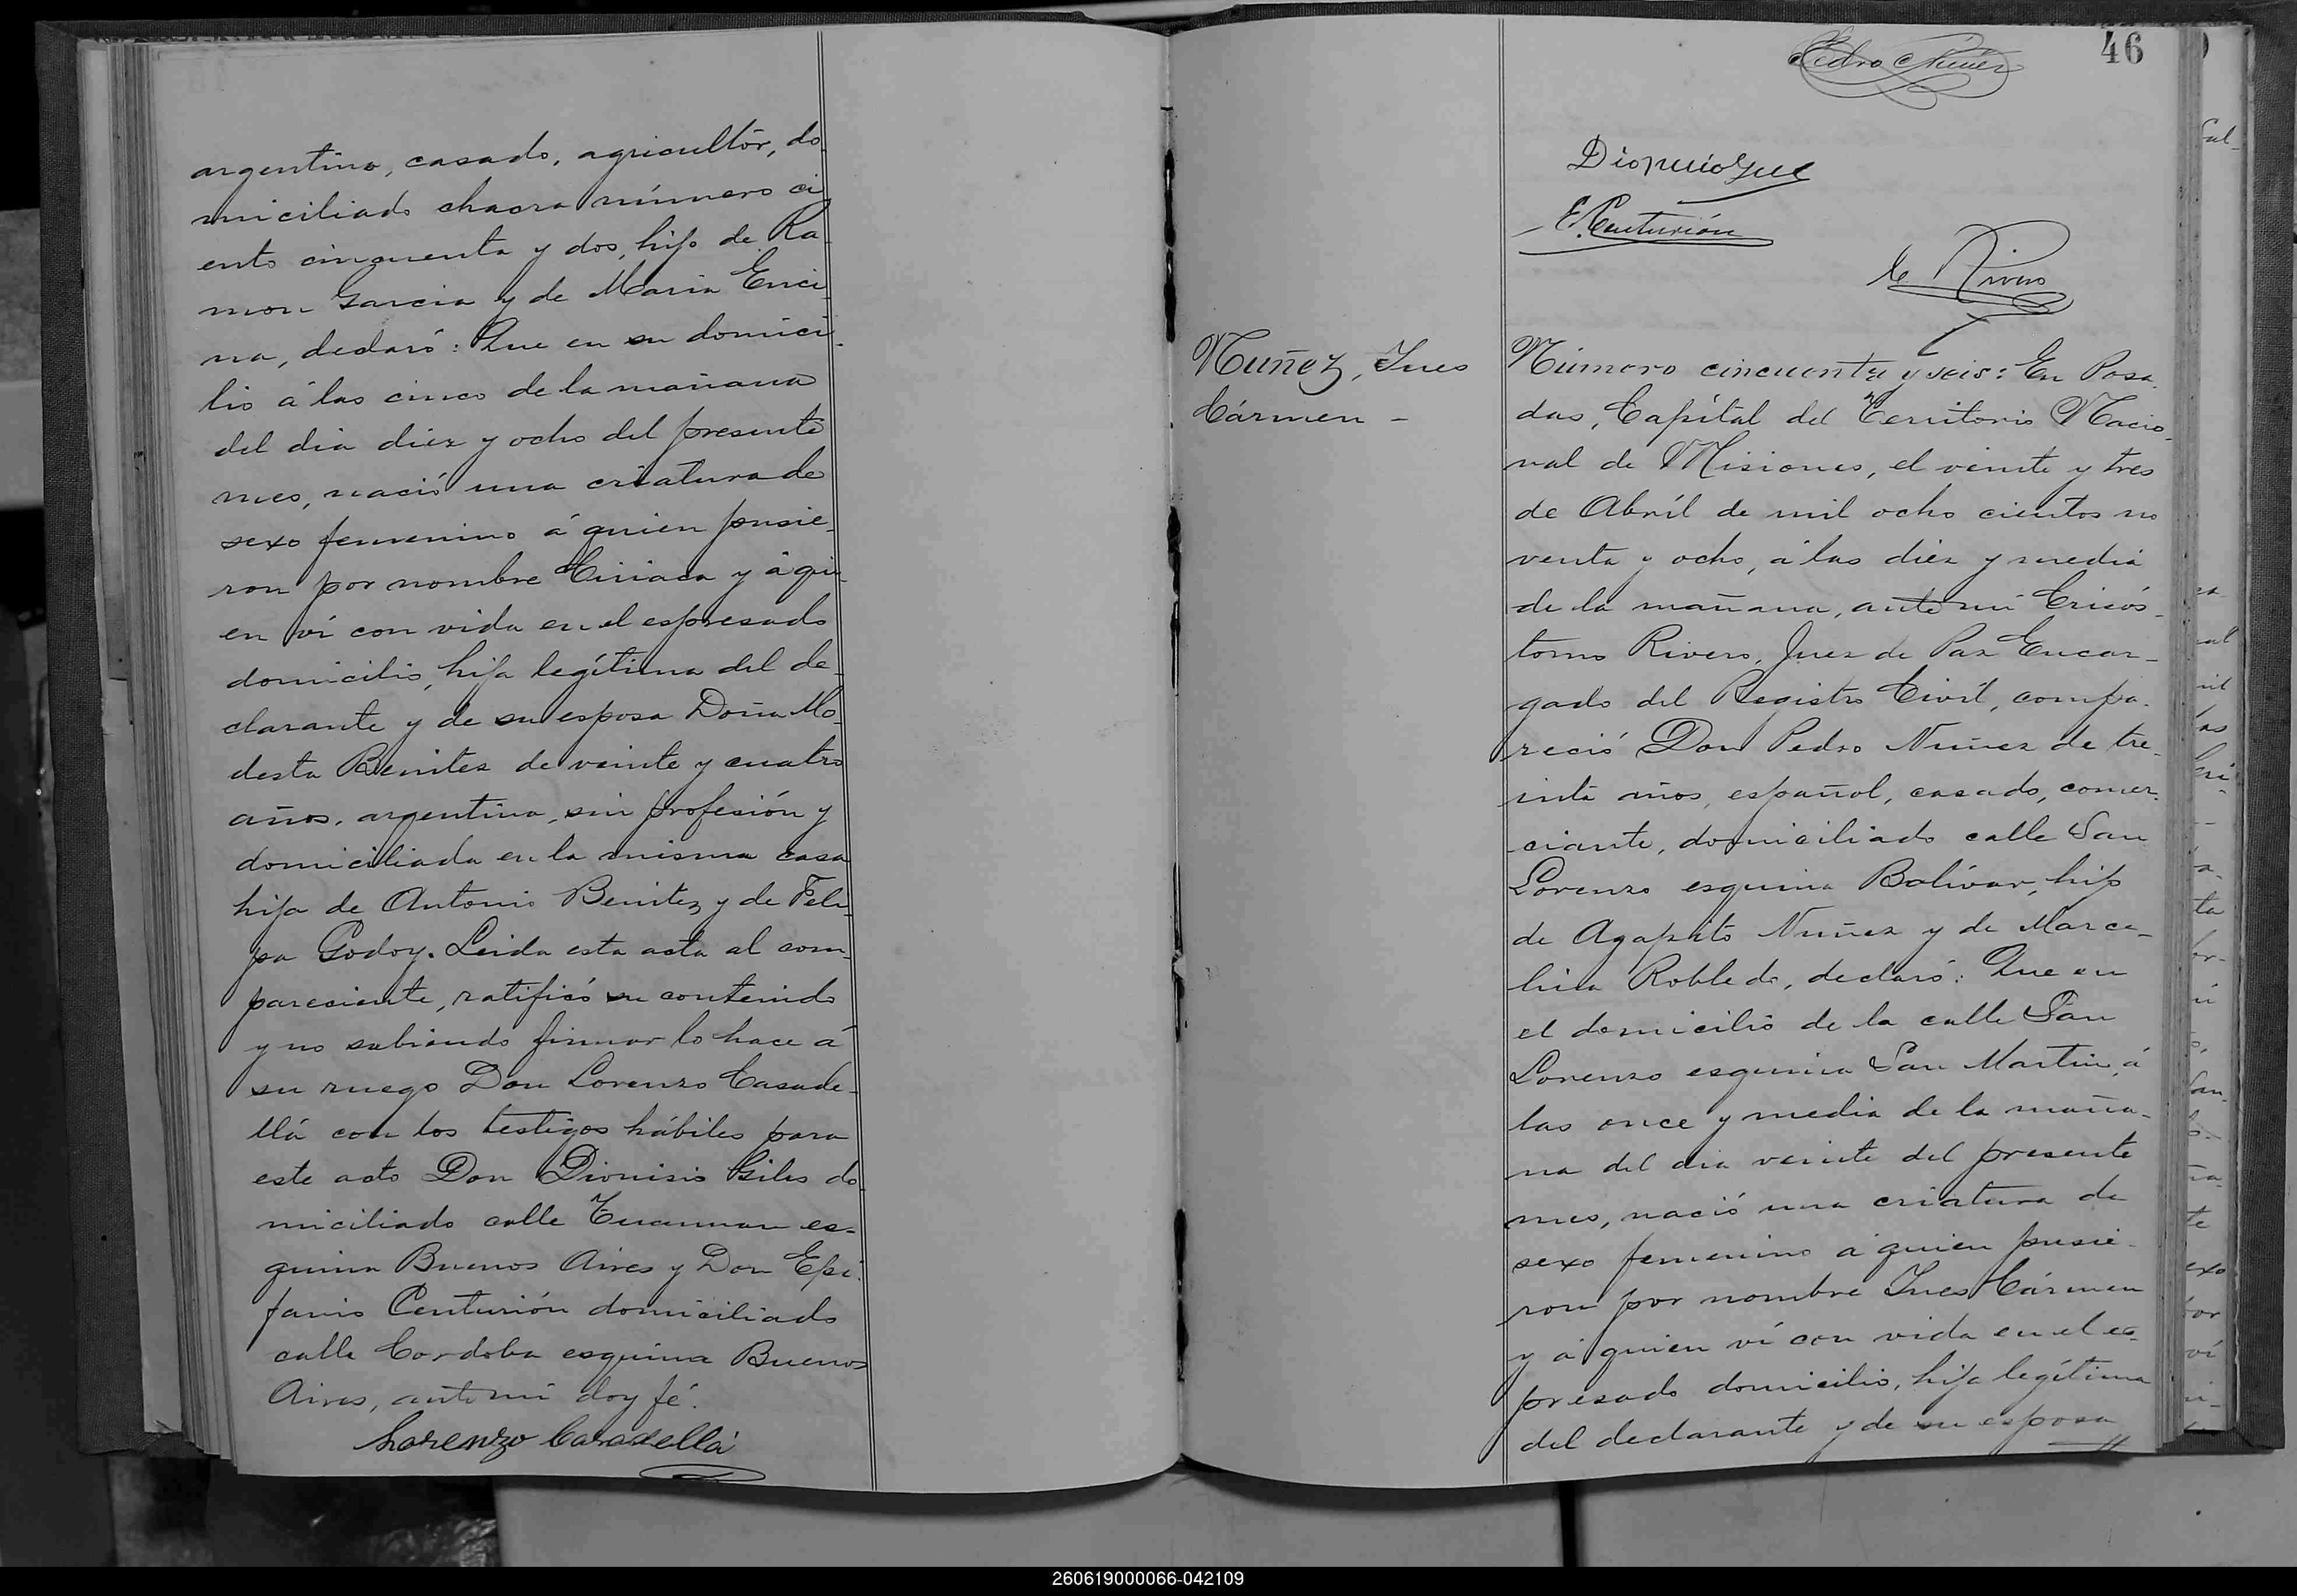 argentino, casado, agricultór, do
miciliado chacra número ci
ento cinquenta y dos, hijo de Ra
mon Garcia y de Maria Enci
na, declaró: Que en su domici
lio á las cinco de la mañana
del dia diez y ocho del presente
mes, nació una criatura de
sexo femenino á quien pusie-
ron por nombre Ciriaca y á qui
en ví con vida en el espresado
domicilio, hija legítima del de
clarante y de su esposa Doña Mo
desta Benitez de veinte y cuatro
años, argentina, sin profesión y
domiciliada en la misma casa
hija de Antonio Benitez y de Feli
pa Godoy. Leida esta acta al com
pareciente, ratificó su contenido
y no sabiendo firmar lo hace á
su ruego Don Lorenzo Casade-
llá con los testigos hábiles para
este acto Don Dionisio Giles do
miciliado calle Tucuman es-
quina Buenos Aires y Don Epi
fanio Centurión domiciliado
calle Cordoba esquina Buenos
Aires, ante mi doy fé.
Lorenzo Casadellá
46
Pedro Nuñez
E. Centurión
C Rivero
Nuñez, Ines
Cármen -
Número cincuenta y seis: En Posa
das, Capítal del Territorio Nacio-
nal de Misiones, el veinte y tres
de Abríl de mil ocho cientos no
venta y ocho, á las diez y media
de la mañana, ante mi Crisós-
tomo Rivero, Juez de Paz Encar-
gado del Registro Civíl, compa-
reció Don Pedro Nuñez de tre-
inta años, español, casado, comer-
ciante, domiciliado calle San
Lorenzo esquina Bolívar, hijo
de Agapito Nuñez y de Marce-
lina Robledo, declaró: Que en
el domicilio de la calle San
Lorenzo esquina San Martin, á
las once y media de la maña-
na del dia veinte del presente
mes, nació una criatura de
sexo femenino á quien pusie-
ron por nombre Ines Cármen
y á quien ví con vida en el es-
presado domicilio, hija legítima
del declarante y de su esposa
260619000066-042109